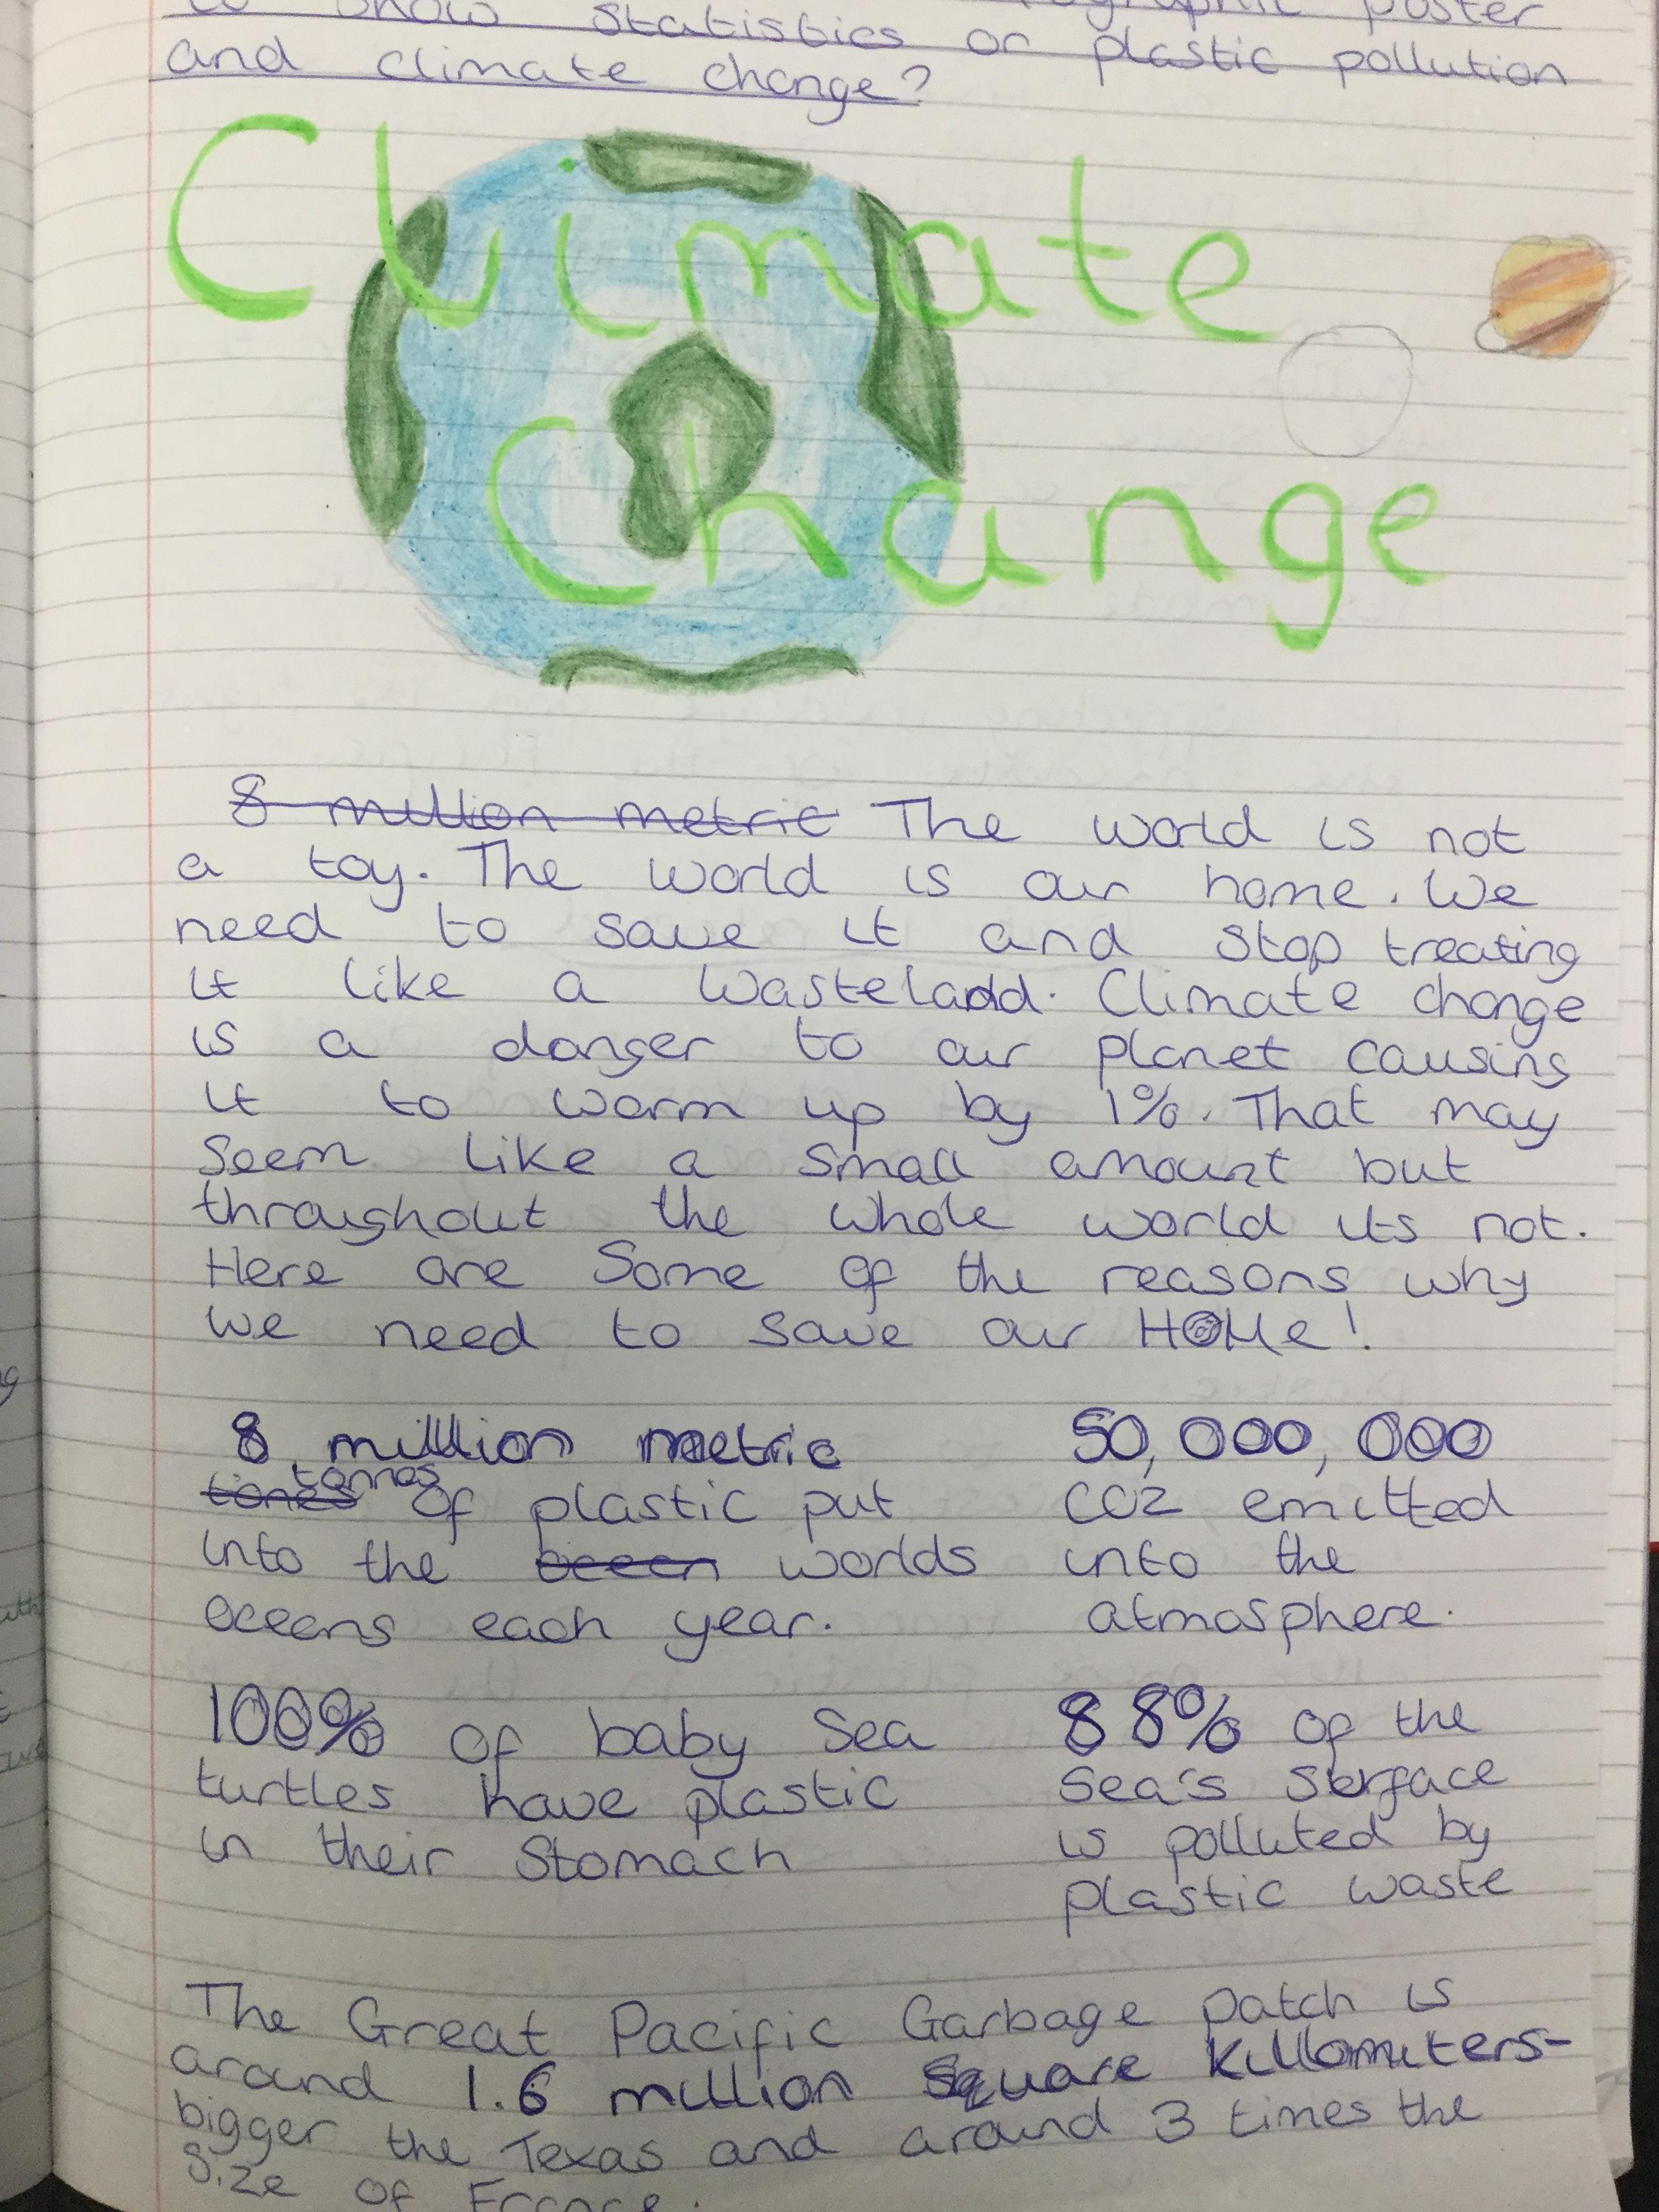 to show statistics on plastic pollution poster
and climate change?
Climate
Change
8 million metric The world is not
a toy. The world is our home. We
need to save it and stop treating
it like a wasteland. Climate change
is a danger to our planet causing
it to warm up by 1%. That may
seem like a small amount but
throughout the whole world its not.
Here are some of the reasons why
we need to save our HOMe!
8 million metric
tones tonnes of plastic put
into the oceen worlds
oceens each year.
50,000,000
CO2 emitted
into the
atmosphere.
100% of baby sea
turtles have plastic
in their stomach
88% of the
sea's serface
is polluted by
plastic waste
The Great Pacific Garbage patch is
around 1.6 million square killomiters-
bigger the Texas and around 3 times the
size of France.